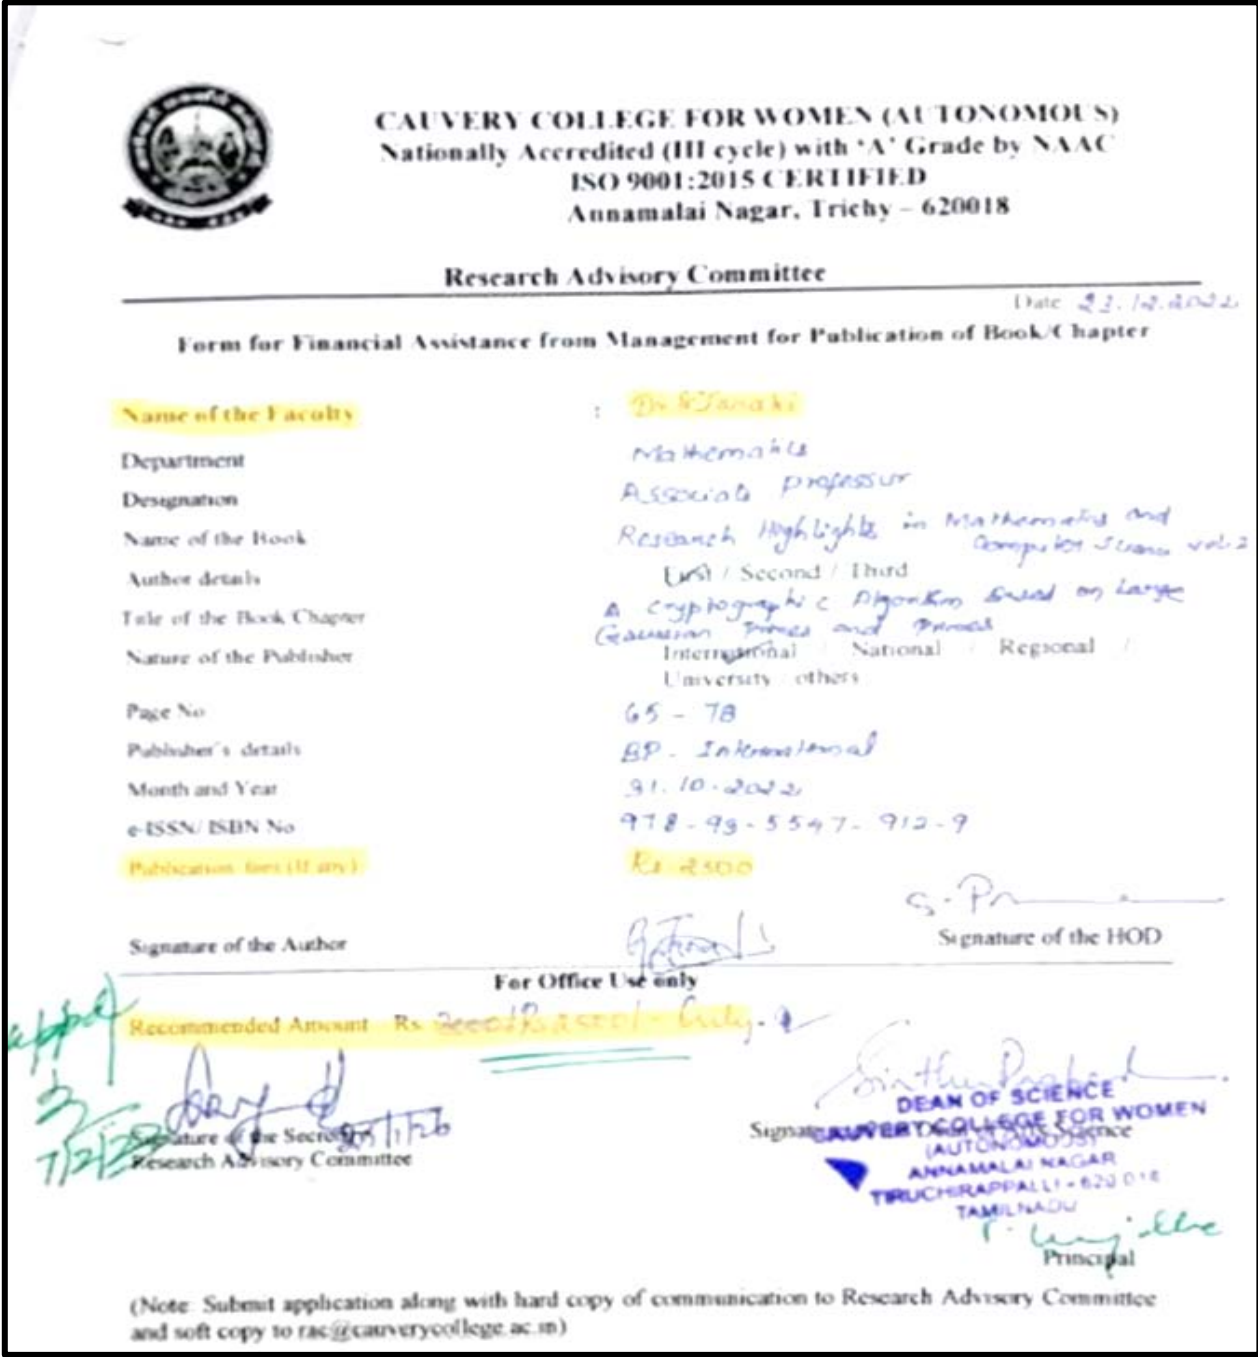 CAUVERY COLLEGE FOR WOMEN (AUTONOMOUS)
Nationally Accredited (III cycle) with 'A' Grade by NAAC
ISO 9001:2015 CERTIFIED
Annamalai Nagar, Trichy – 620018
Research Advisory Committee
Date
Form for Financial Assistance from Management for Publication of Book/Chapter
Name of the Faculty : Dr. G. Janaki
Department Mathematics
Designation Associate professor
Name of the Book Research Highlights in Mathematics and
Computer Science vol.2
Author details First / Second / Third
Title of the Book Chapter A cryptographic Algorithm based on Large
Gaussian Primes and Primes
Nature of the Publisher International / National / Regional /
University / others
Page No 65 - 78
Publisher's details BP. International
Month and Year 31.10.2022
e-ISSN/ ISBN No 978-93-5547-912-9
Publication fees (If any) Rs 2500
Signature of the Author Signature of the HOD
For Office Use only
Recommended Amount Rs
7/2/23
Signature of the Secretary
Research Advisory Committee
Signature Science
DEAN OF SCIENCE
CAUVERY COLLEGE FOR WOMEN
(AUTONOMOUS)
ANNAMALAI NAGAR
TIRUCHIRAPPALLI - 620 018
TAMILNADU
Principal
(Note: Submit application along with hard copy of communication to Research Advisory Committee
and soft copy to rac@cauverycollege.ac.in)